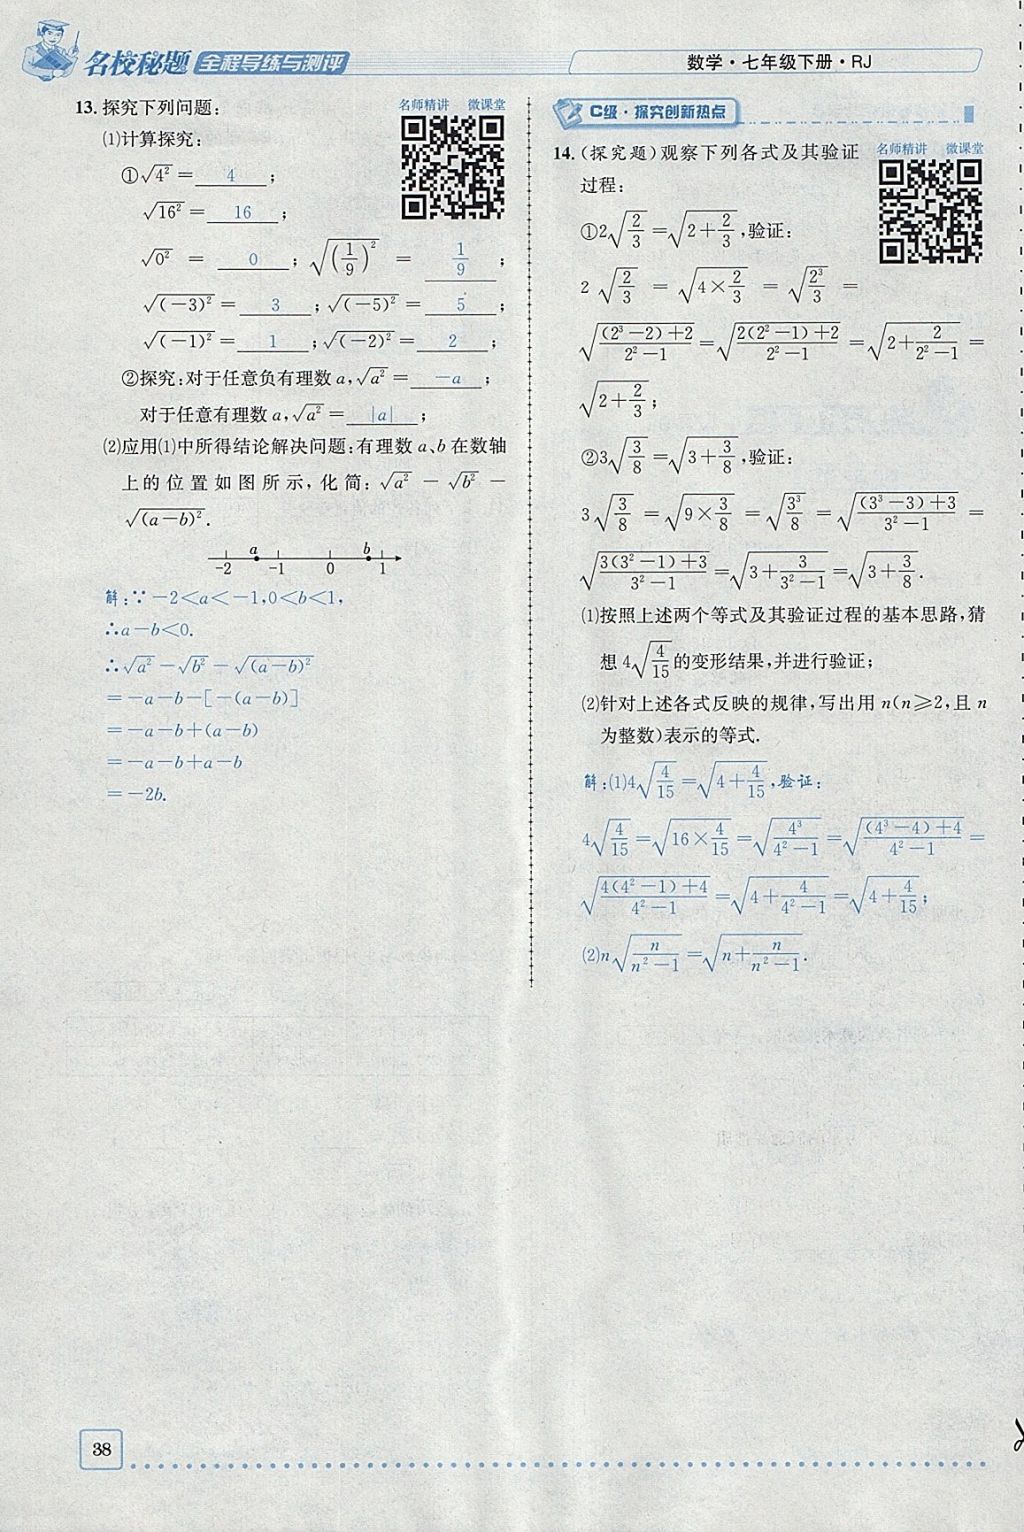 名校秘题 全程导练与测评
数学·七年级下册·RJ
13. 探究下列问题:
名师精讲 微课堂
(1)计算探究:
①√(4²) = 4 ;
√(16²) = 16 ;
√(0²) = 0 ; √((1/9)²) = 1/9 ;
√((-3)²) = 3 ; √((-5)²) = 5 ;
√((-1)²) = 1 ; √((-2)²) = 2 ;
②探究:对于任意负有理数 a, √(a²) = -a ;
对于任意有理数 a, √(a²) = |a| ;
(2)应用(1)中所得结论解决问题:有理数 a、b 在数轴
上的位置如图所示,化简: √(a²) - √(b²) -
√((a-b)²).
a b
-2 -1 0 1
解:∵-2<a<-1,0<b<1,
∴a-b<0.
∴√(a²)-√(b²)-√((a-b)²)
=-a-b-[-(a-b)]
=-a-b+(a-b)
=-a-b+a-b
=-2b.
C级·探究创新热点
14. (探究题)观察下列各式及其验证
名师精讲 微课堂
过程:
①2√(2/3)=√(2+2/3),验证:
2√(2/3) = √(4×2/3) = √(2³/3) =
√(((2³-2)+2)/(2²-1))=√((2(2²-1)+2)/(2²-1))=√(2+2/(2²-1))=
√(2+2/3);
②3√(3/8)=√(3+3/8),验证:
3√(3/8) = √(9×3/8) = √(3³/8) = √(((3³-3)+3)/(3²-1)) =
√((3(3²-1)+3)/(3²-1))=√(3+3/(3²-1))=√(3+3/8).
(1)按照上述两个等式及其验证过程的基本思路,猜
想 4√(4/15)的变形结果,并进行验证;
(2)针对上述各式反映的规律,写出用 n(n≥2,且 n
为整数)表示的等式.
解:(1)4√(4/15)=√(4+4/15),验证:
4√(4/15)=√(16×4/15)=√(4³/(4²-1))=√(((4³-4)+4)/(4²-1))=
√((4(4²-1)+4)/(4²-1))=√(4+4/(4²-1))=√(4+4/15);
(2)n√(n/(n²-1))=√(n+n/(n²-1)).
38